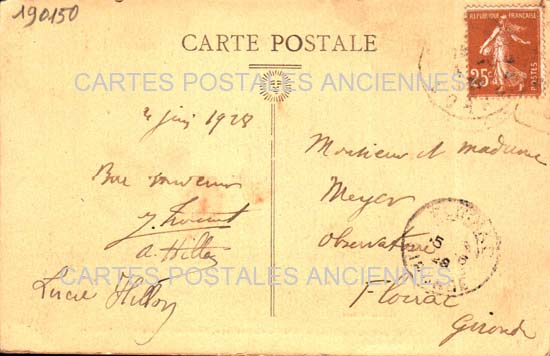 190150
CARTE POSTALE
REPUBLIQUE FRANÇAISE
25c
POSTES
CARTES POSTALES ANCIENNES
4 juin 1928
Bon souvenir
Lucie Hillon
Monsieur et madame
Meyer
Observatoire
Floirac
Gironde
CARTES POSTALES ANCIENNES